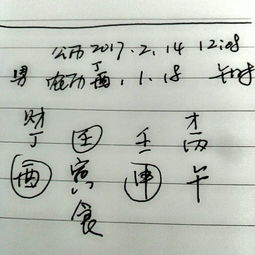 公历2017.2.14 12:08
男 农历丁酉.1.18 午时
财 才
丁 壬 壬 丙
酉 寅 申 午
食